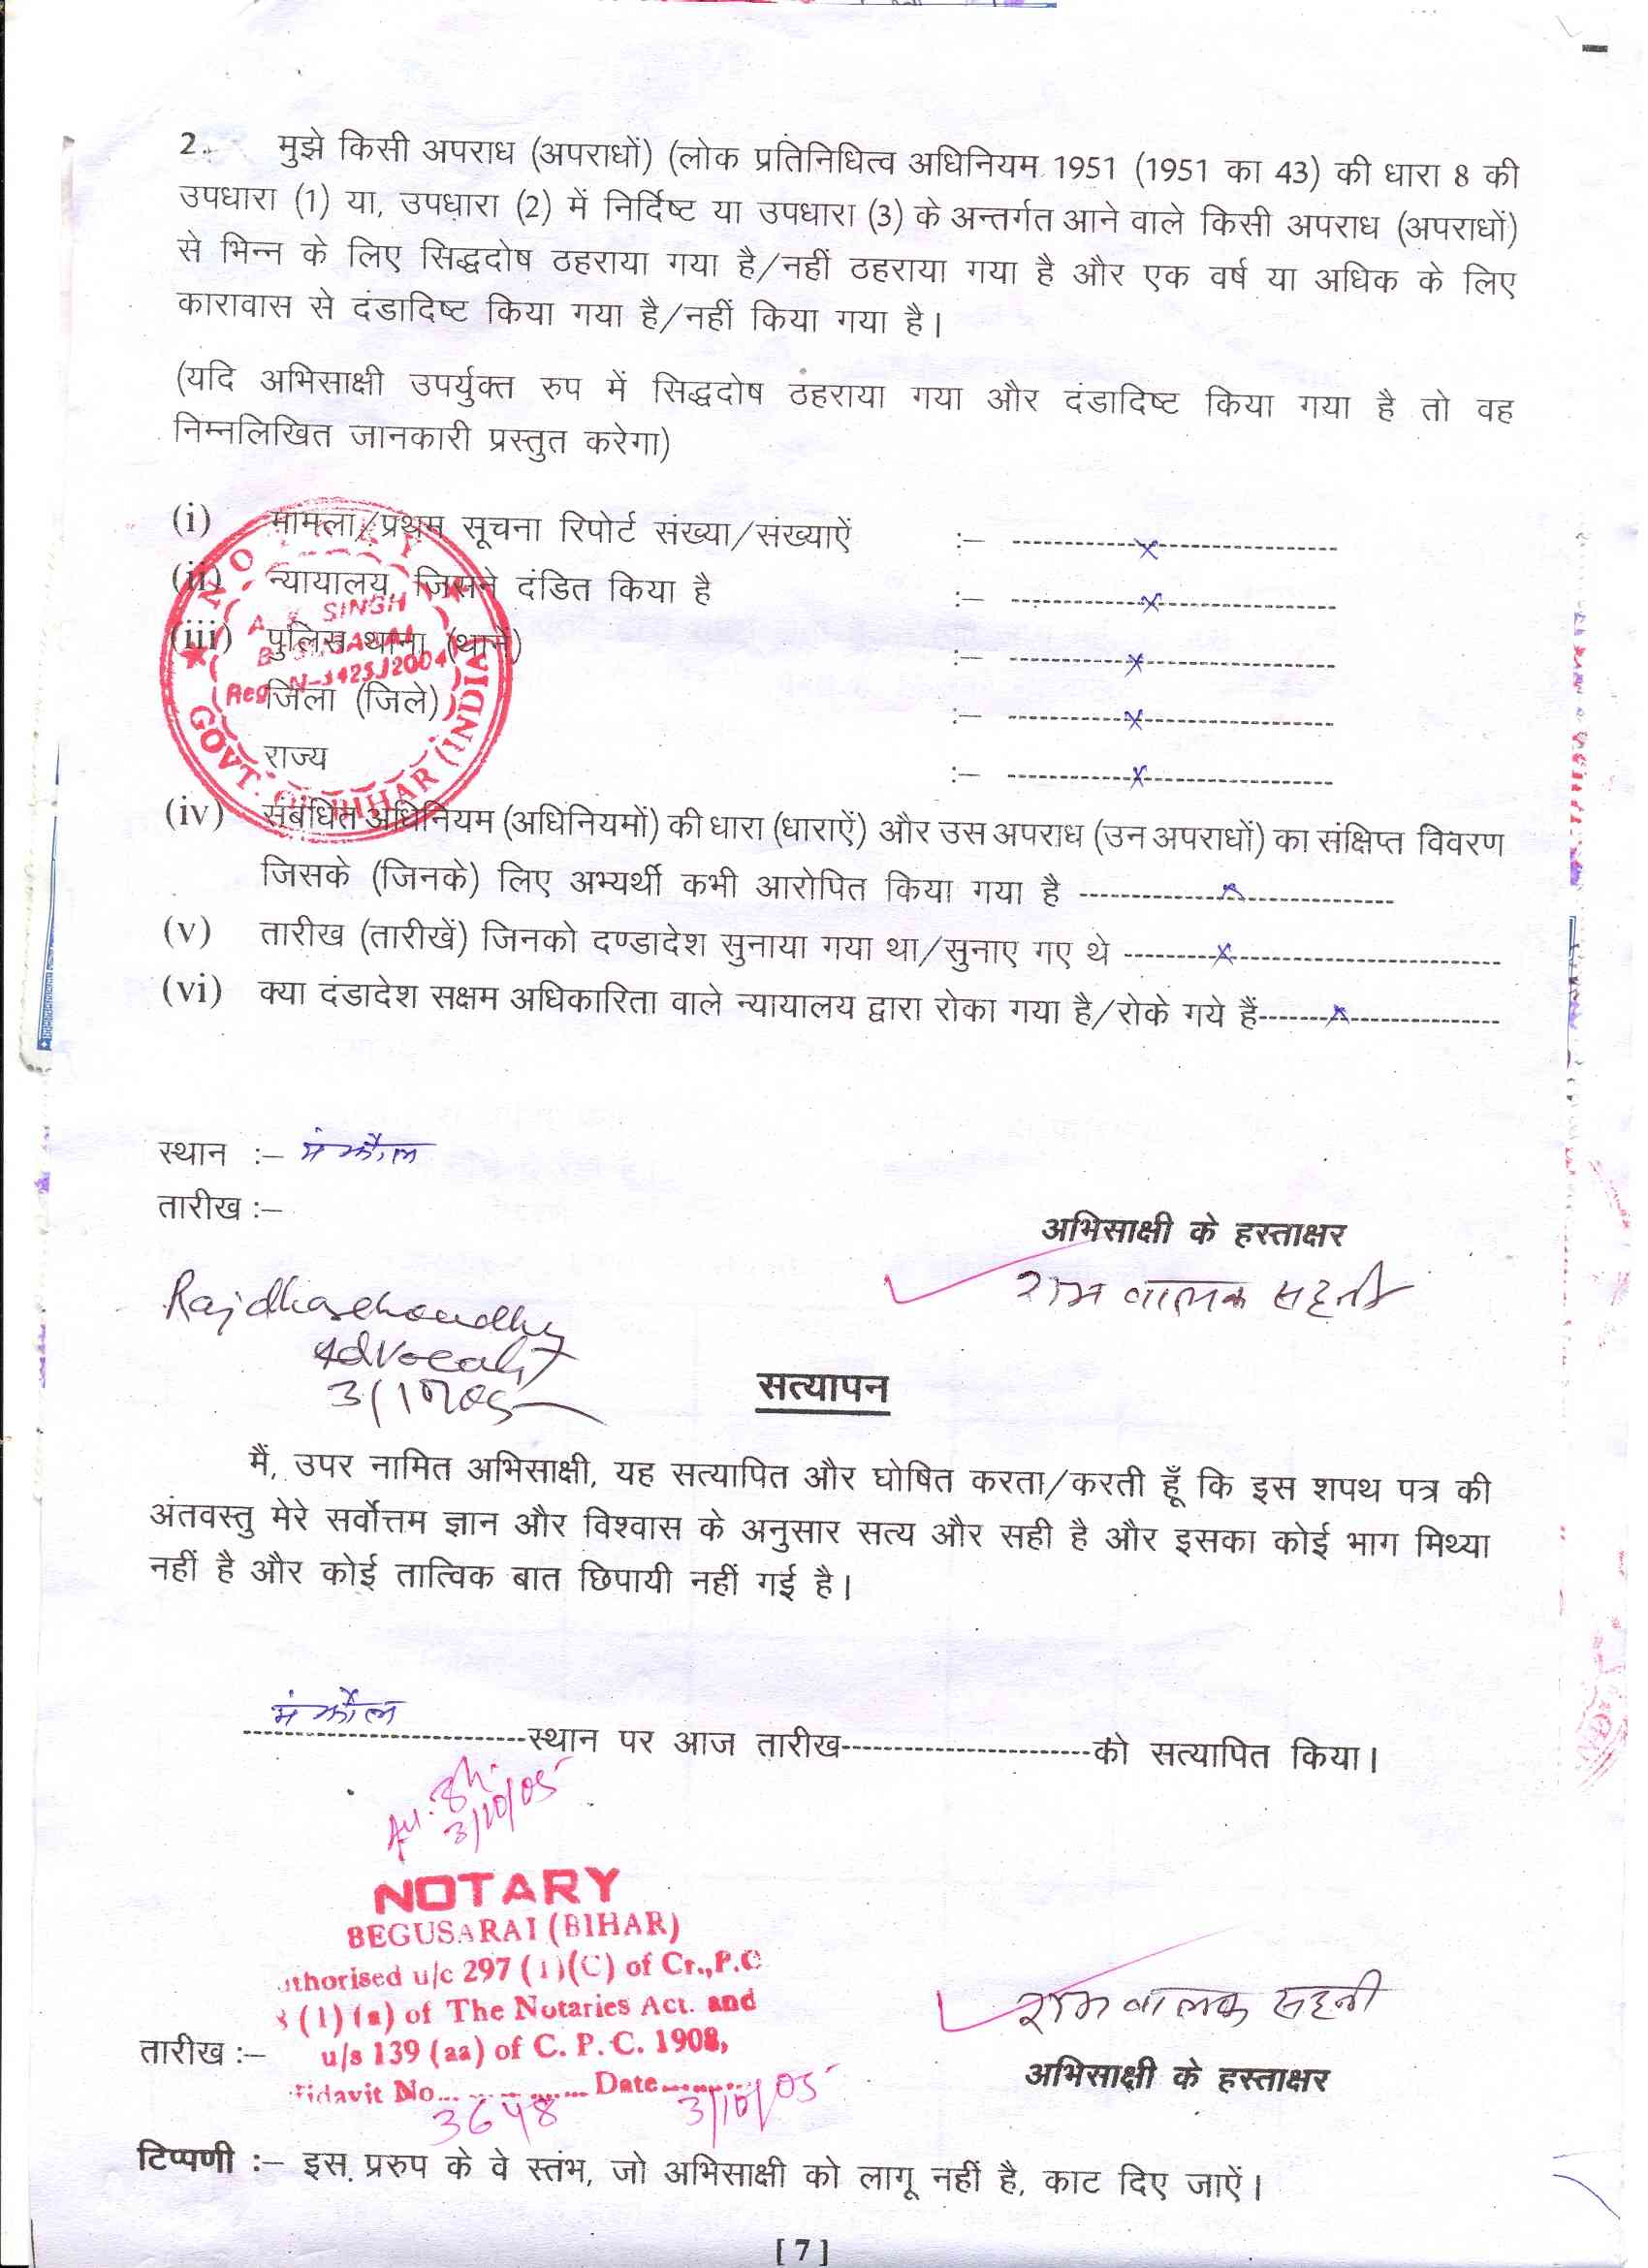 2. मुझे किसी अपराध (अपराधों) (लोक प्रतिनिधित्व अधिनियम 1951 (1951 का 43) की धारा 8 की
उपधारा (1) या, उपधारा (2) में निर्दिष्ट या उपधारा (3) के अन्तर्गत आने वाले किसी अपराध (अपराधों)
से भिन्न के लिए सिद्धदोष ठहराया गया है/नहीं ठहराया गया है और एक वर्ष या अधिक के लिए
कारावास से दंडादिष्ट किया गया है/नहीं किया गया है।
(यदि अभिसाक्षी उपर्युक्त रुप में सिद्धदोष ठहराया गया और दंडादिष्ट किया गया है तो वह
निम्नलिखित जानकारी प्रस्तुत करेगा)
(i) मामला/प्रथम सूचना रिपोर्ट संख्या/संख्याऐं :– ---------- x ----------
(ii) न्यायालय, जिसने दंडित किया है :– ---------- x ----------
(iii) पुलिस थाना (थाने) :– ---------- x ----------
जिला (जिले) :– ---------- x ----------
राज्य :– ---------- x ----------
SINGH
GOVT. OF BIHAR (INDIA)
(iv) संबंधित अधिनियम (अधिनियमों) की धारा (धाराऐं) और उस अपराध (उन अपराधों) का संक्षिप्त विवरण
जिसके (जिनके) लिए अभ्यर्थी कभी आरोपित किया गया है ---------- x ----------
(v) तारीख (तारीखें) जिनको दण्डादेश सुनाया गया था/सुनाए गए थे ---------- x ----------
(vi) क्या दंडादेश सक्षम अधिकारिता वाले न्यायालय द्वारा रोका गया है/रोके गये हैं ---------- x ----------
स्थान :– मंझौल
तारीख :–
अभिसाक्षी के हस्ताक्षर
राम बालक सहनी
Advocate
3/10/05
सत्यापन
मैं, उपर नामित अभिसाक्षी, यह सत्यापित और घोषित करता/करती हूँ कि इस शपथ पत्र की
अंतवस्तु मेरे सर्वोत्तम ज्ञान और विश्वास के अनुसार सत्य और सही है और इसका कोई भाग मिथ्या
नहीं है और कोई तात्विक बात छिपायी नहीं गई है।
मंझौल ----------स्थान पर आज तारीख----------को सत्यापित किया।
3/10/05
NOTARY
BEGUSARAI (BIHAR)
uthorised u/c 297 (1)(C) of Cr.,P.C
(1) (a) of The Notaries Act. and
u/s 139 (aa) of C. P. C. 1908,
fidavit No... 3648 Date... 3/10/05
राम बालक सहनी
तारीख :–
अभिसाक्षी के हस्ताक्षर
टिप्पणी :– इस प्ररुप के वे स्तंभ, जो अभिसाक्षी को लागू नहीं है, काट दिए जाऐं।
[ 7 ]